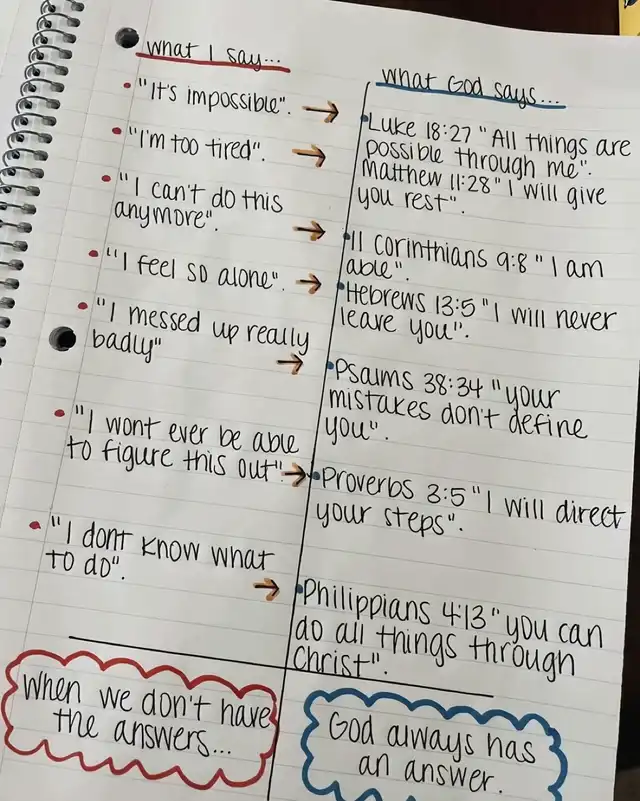 what I say...
"It's impossible".
"I'm too tired".
"I can't do this
anymore".
"I feel so alone".
"I messed up really
badly"
"I wont ever be able
to figure this out".
"I dont know what
to do".
when we don't have
the answers...
what God says...
Luke 18:27 "All things are
possible through me".
Matthew 11:28 "I will give
you rest".
II Corinthians 9:8 "I am
able".
Hebrews 13:5 "I will never
leave you".
Psalms 38:34 "your
mistakes don't define
you".
Proverbs 3:5 "I will direct
your steps".
Philippians 4:13 "you can
do all things through
Christ".
God always has
an answer.